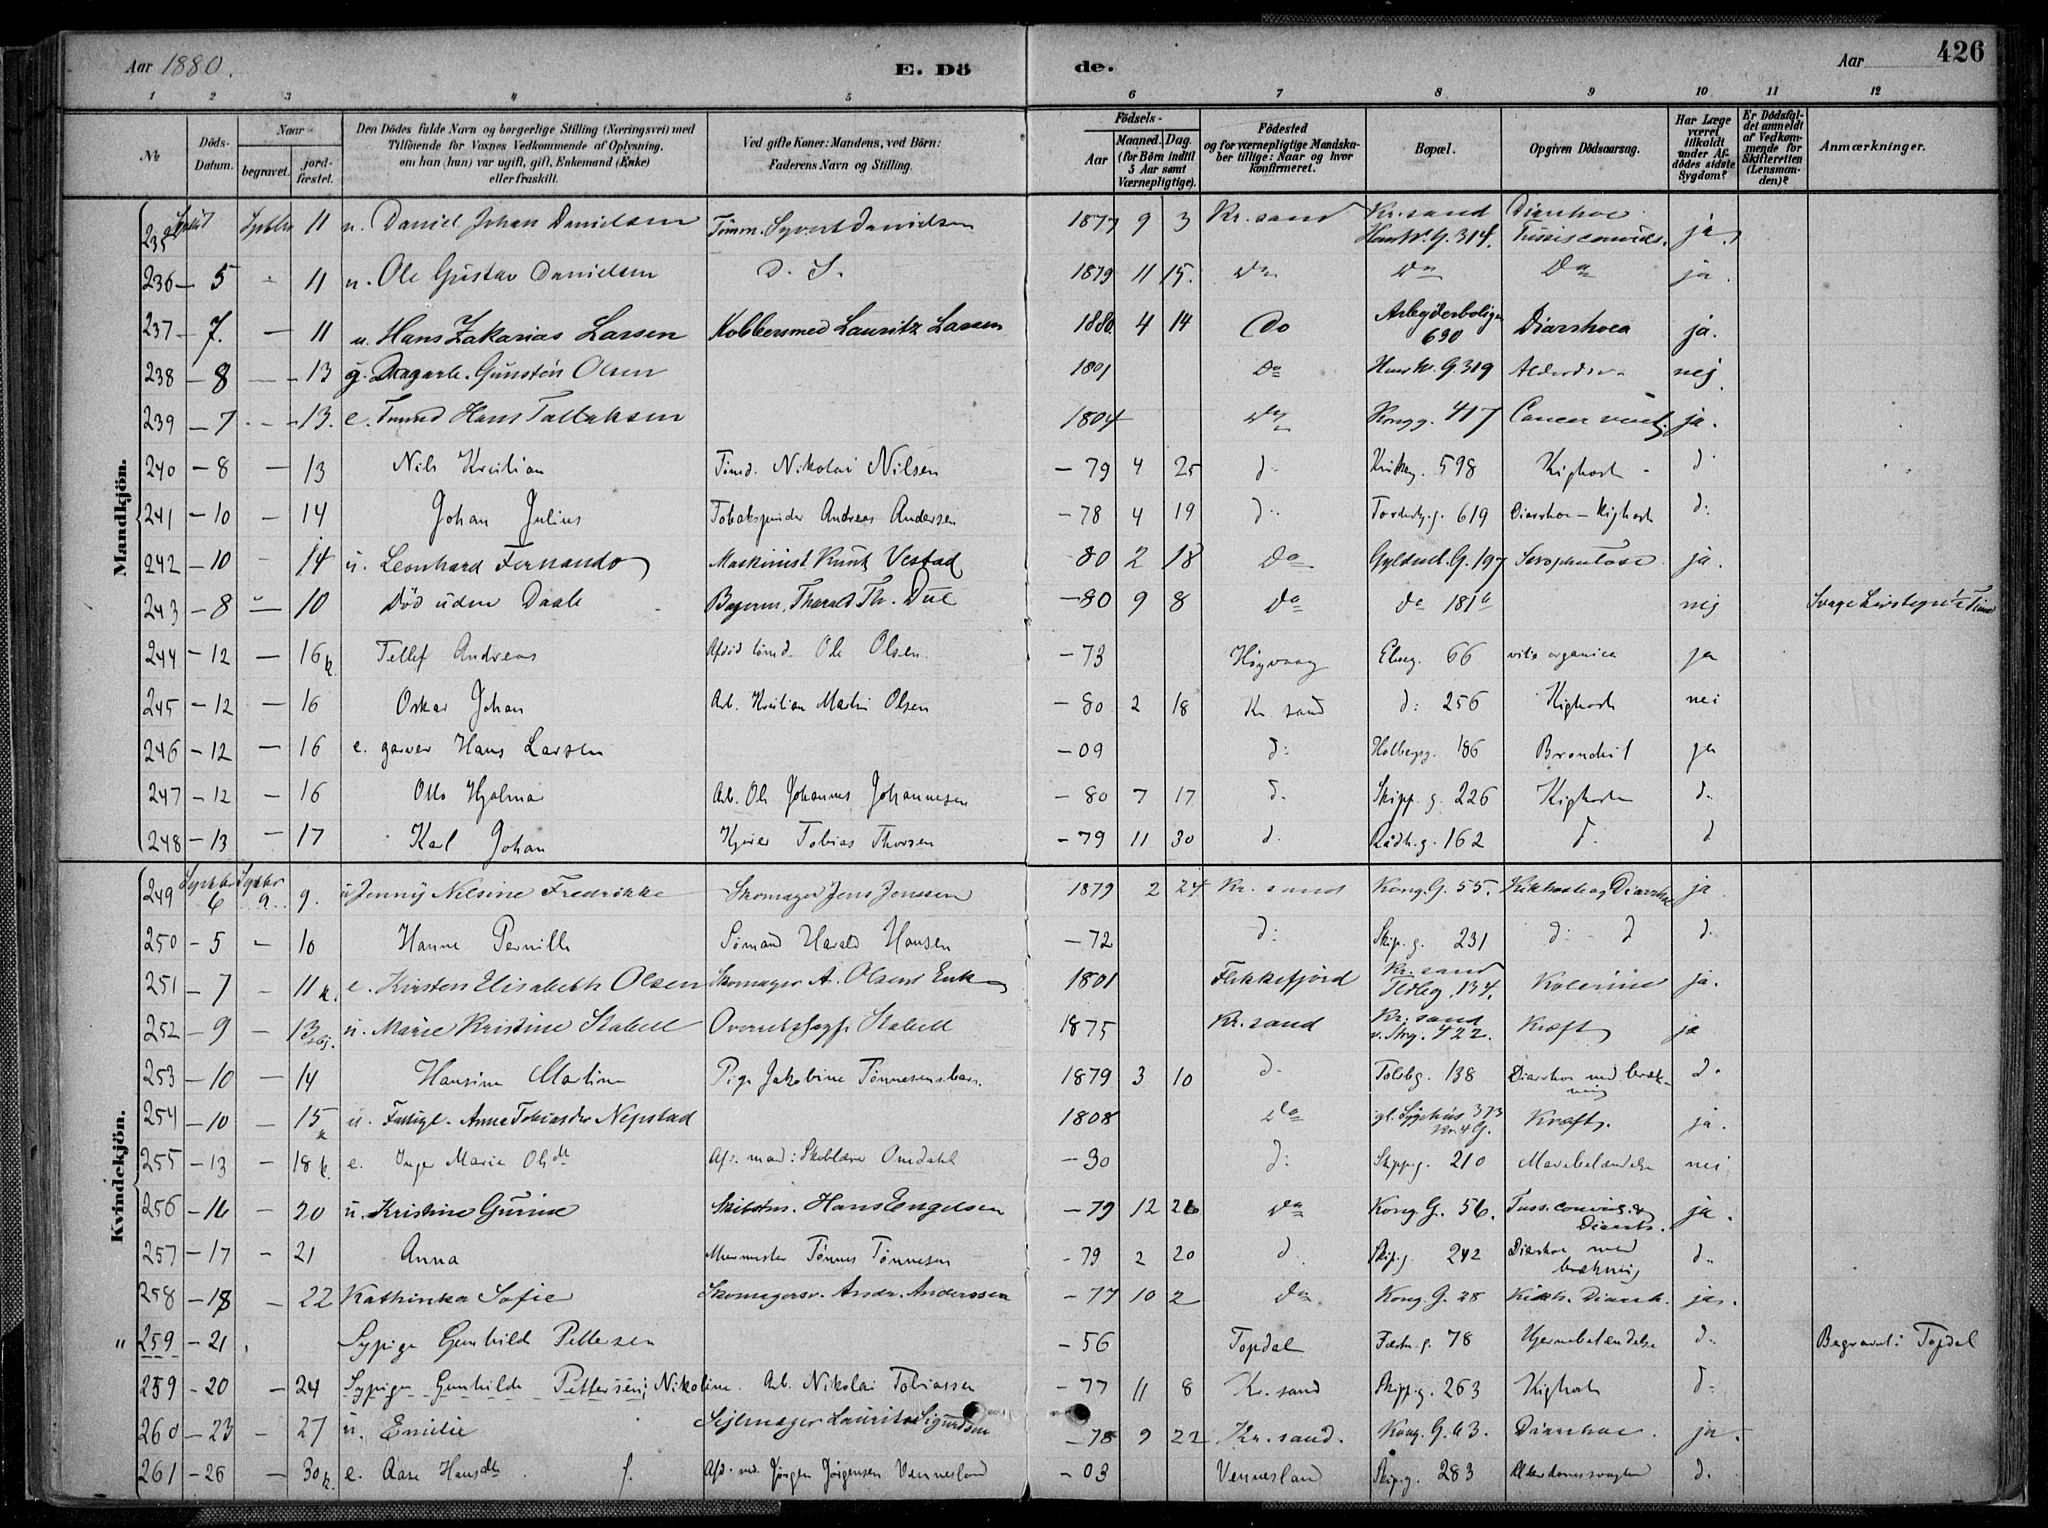 Aar 1880. E. Dö de. Aar 426
1 2 3 4 5 6 7 8 9 10 11 12
No. Döds-Datum. Naar begravet. jordfæstet.
Den Dödes fulde Navn og borgerlige Stilling (Næringsvei) med Tilföiende for Voxnes Vedkommende af Oplysning, om han (hun) var ugift, gift, Enkemand (Enke) eller fraskilt.
Ved gifte Koner: Mandens, ved Börn: Faderens Navn og Stilling.
Födsels- Aar Maaned. Dag. (for Börn indtil 5 Aar samt Værnepligtige).
Födested og for værnepligtige Mandskaber tillige: Naar og hvor konfirmeret.
Bopæl.
Opgiven Dödsaarsag.
Har Læge været tilkaldt under Afdödes sidste Sygdom?
Er Dödsfaldet anmeldt af Vedkommende for Skifteretten (Lensmanden)?
Anmærkninger.
Mandkjön.
235 Septbr 11 u. Daniel Johan Danielsen Tömm. Syvert Danielsen 1877 9 3 Kr.sand Kr.sand G. 314. Diarrhoe ja
236 - 5 - 11 u. Ole Gustav Danielsen D. S. 1879 11 15. Do Do Do ja.
237 - 7. - 11 u. Hans Zakarias Larsen Kobbersmed Lauritz Larsen 1880 4 14 Do Arbejderboligen 690 Diarrhoea ja.
238 - 8 - 13 g. Gunstön Olsen 1801 Do G. 319 nej
239 - 7 - 13. e. Hans Tallaksen 1804 Do Kongg. 417 Cancer ventr. ja.
240 - 8 - 13 Nils Kristian Tömd. Nikolai Nilsen - 79 4 25 d: 598 Kighoste d:
241 - 10 - 14 Johan Julius Tobakspinder Andreas Andersen - 78 4 19 d: 619 Diarrhoe - Kighoste d:
242 - 10 - 14 u. Leonhard Fernando Maskinist Knut Vestad - 80 2 18 Do Gyldenl. G. 197 Scrophulose ja.
243 - 8 - 10 Död uden Daab Th. Due - 80 9 8 Do do 181 b nej
244 - 12 - 16 k Tellef Andreas Afdöd tömd. Ole Olsen. - 73 Högvaag Elveg. 66 vitio organica ja
245 - 12 - 16 Oskar Johan Arb. Kristian Martin Olsen - 80 2 18 Kr sand d: 256 Kighoste nei
246 - 12 - 16 e. garver Hans Larsen - 09 d: Holbergsg. 186 Bronchit ja
247 - 12 - 16 Otto Hjalmar Arb. Ole Johannes Johannesen - 80 7 17 d. Skipp.g. 226 Kighoste d:
248 - 13 - 17 Karl Johan Tobias Thorsen - 79 11 30 d. Rådh.g. 162 d: d
Kvindekjön.
249 Septbr 6 Septbr 9. 9. u Jenny Nilsine Fredrikke Skomager Jens Jenssen 1879 2 24 Kr. sand Kong.G. 55. Kikhoste og Diarrhoe ja
250 - 5 - 10 Hanne Pernille Sömand Harald Hansen - 72 d: Skip.g. 231 d: d d:
251 - 7 - 11 k. e. Kirsten Elisabeth Olsen Skomager A. Olsens Enke 1801 Flekkefjord Kr. sand Toldbg. 134. Kolerine ja.
252 - 9 - 13 u. Marie Kristine Stabell Stabell 1875 Kr. sand Kr. sand v. Strg. 422. Kræft ja
253 - 10 - 14 Hansine Martine Pige Jakobine Tönnesens barn. 1879 3 10 d. Toldbg. 138 Diarrhoe med brækning d.
254 - 10 - 15 k u. Fattigl. Anne Tobiasdtr Nepstad 1808 Do gl. Sygehus 373 Kræft. ja.
255 - 13 - 18 k. e. Inger Marie Olsdt Afd. mand: Skolelærer Omdahl - 30 d: Skippg. 210 Mavebetændelse nei
256 - 16 - 20 u. Kristine Gurine Hans Engelsen - 79 12 26 Do Kong.G. 56. Tuss. conv. & Diarrh. ja.
257 - 17 - 21 Anna Murmester Tönnes Tönnesen - 79 2 20 d. Skip.g 242 Diarrhoe med brækning d.
258 - 18 - 22 Kathinka Sofie Skomagersv. Andr. Anderssen - 77 10 2 Do Kong. G. 28 Kikh. Diarrh. ja.
" 259 - 21 Sypige Gunhild Pettersen - 56 Topdal Fæstn.g. 78 Hjernebetændelse d. Begravet i Topdal
259 - 20 - 24 Sypige Gunhilde Pettersen; Nikoline. Arb. Nikolai Tobiassen - 77 11 8 Kr. sand Skipp.g. 263 Kighoste d:
260 - 23 - 27 u. Emilie Sejlmager Lauritz Sigurdsen - 78 9 22 Kr. sand. Kong. G. 63. Diarrhoe. ja.
261 - 26 - 30 k. e. Aase Hansdtr Afd. md. Jörgen Jörgensen Vennesland - 03 Vennesland Skip.g. 283 Alderdomssvaghed d.